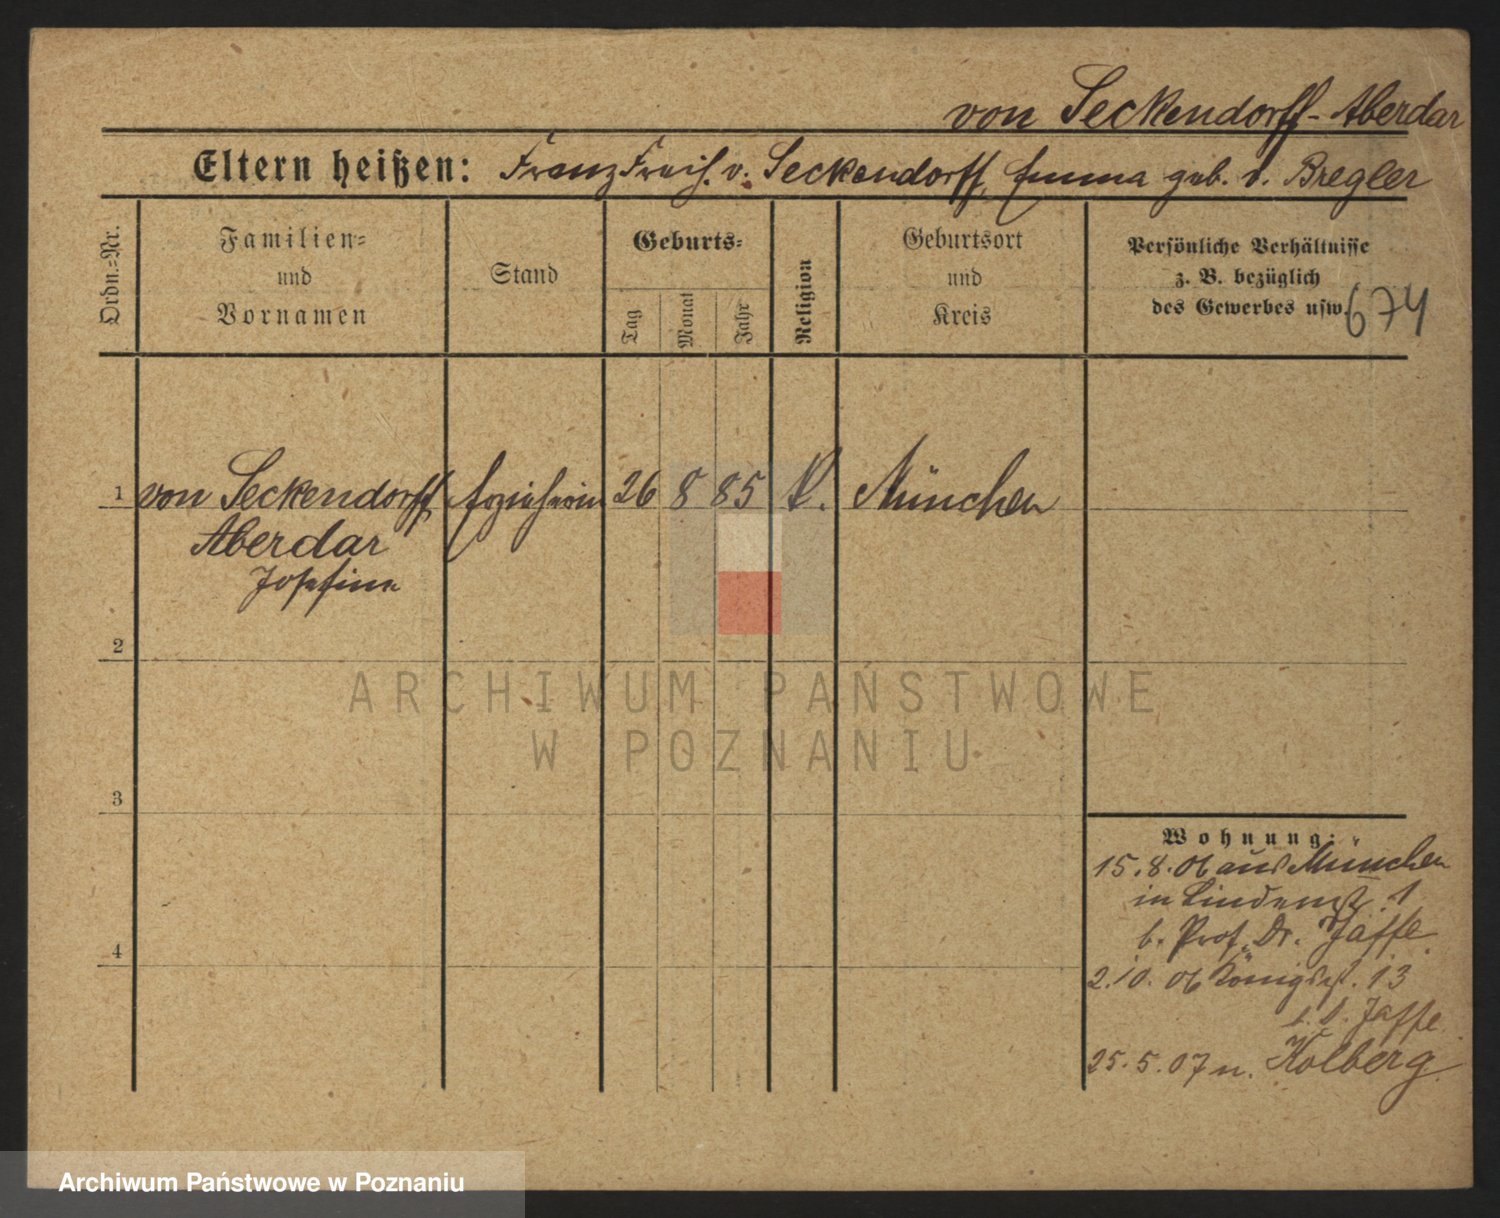 von Seckendorff-Aberdar
Eltern heißen: Franz Freih. v. Seckendorff, Emma geb. v. Bregler
Ordn.-Nr.
Familien-
und
Vornamen
Stand
Geburts-
Tag
Monat
Jahr
Religion
Geburtsort
und
Kreis
Persönliche Verhältnisse
z. B. bezüglich
des Gewerbes usw.
674
1 von Seckendorff Erzieherin 26 8 85 K. München
Aberdar
Josefine
2
3
4
ARCHIWUM PAŃSTWOWE
W POZNANIU
Wohnung:
15.8.06 aus München
in Lindenst. 1
b. Prof. Dr. Jaffe
2.10.06 Königst. 13
Jaffe
25.5.07 n. Kolberg
Archiwum Państwowe w Poznaniu